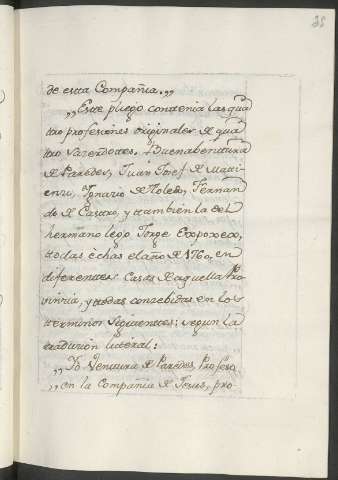 de esta Compañia.„
„Este pliego contenia las qua
tro profesiones originales de qua
tro Sazerdotes, Buenabentura
de Paredes, Juan Josef de Mati
enzu, Ignazio de Toledo, Fernan
do de Castro, y tambien la del
hermano lego Jorge
todas echas el año de 1760, en
diferentes Casas de aquella Pro
vinzia, y todas conzebidas en los
terminos siguientes: segun la
traduzion literal:
„Yo Ventura de Paredes, Profeso,
„en la Compañia de Jesus, pro